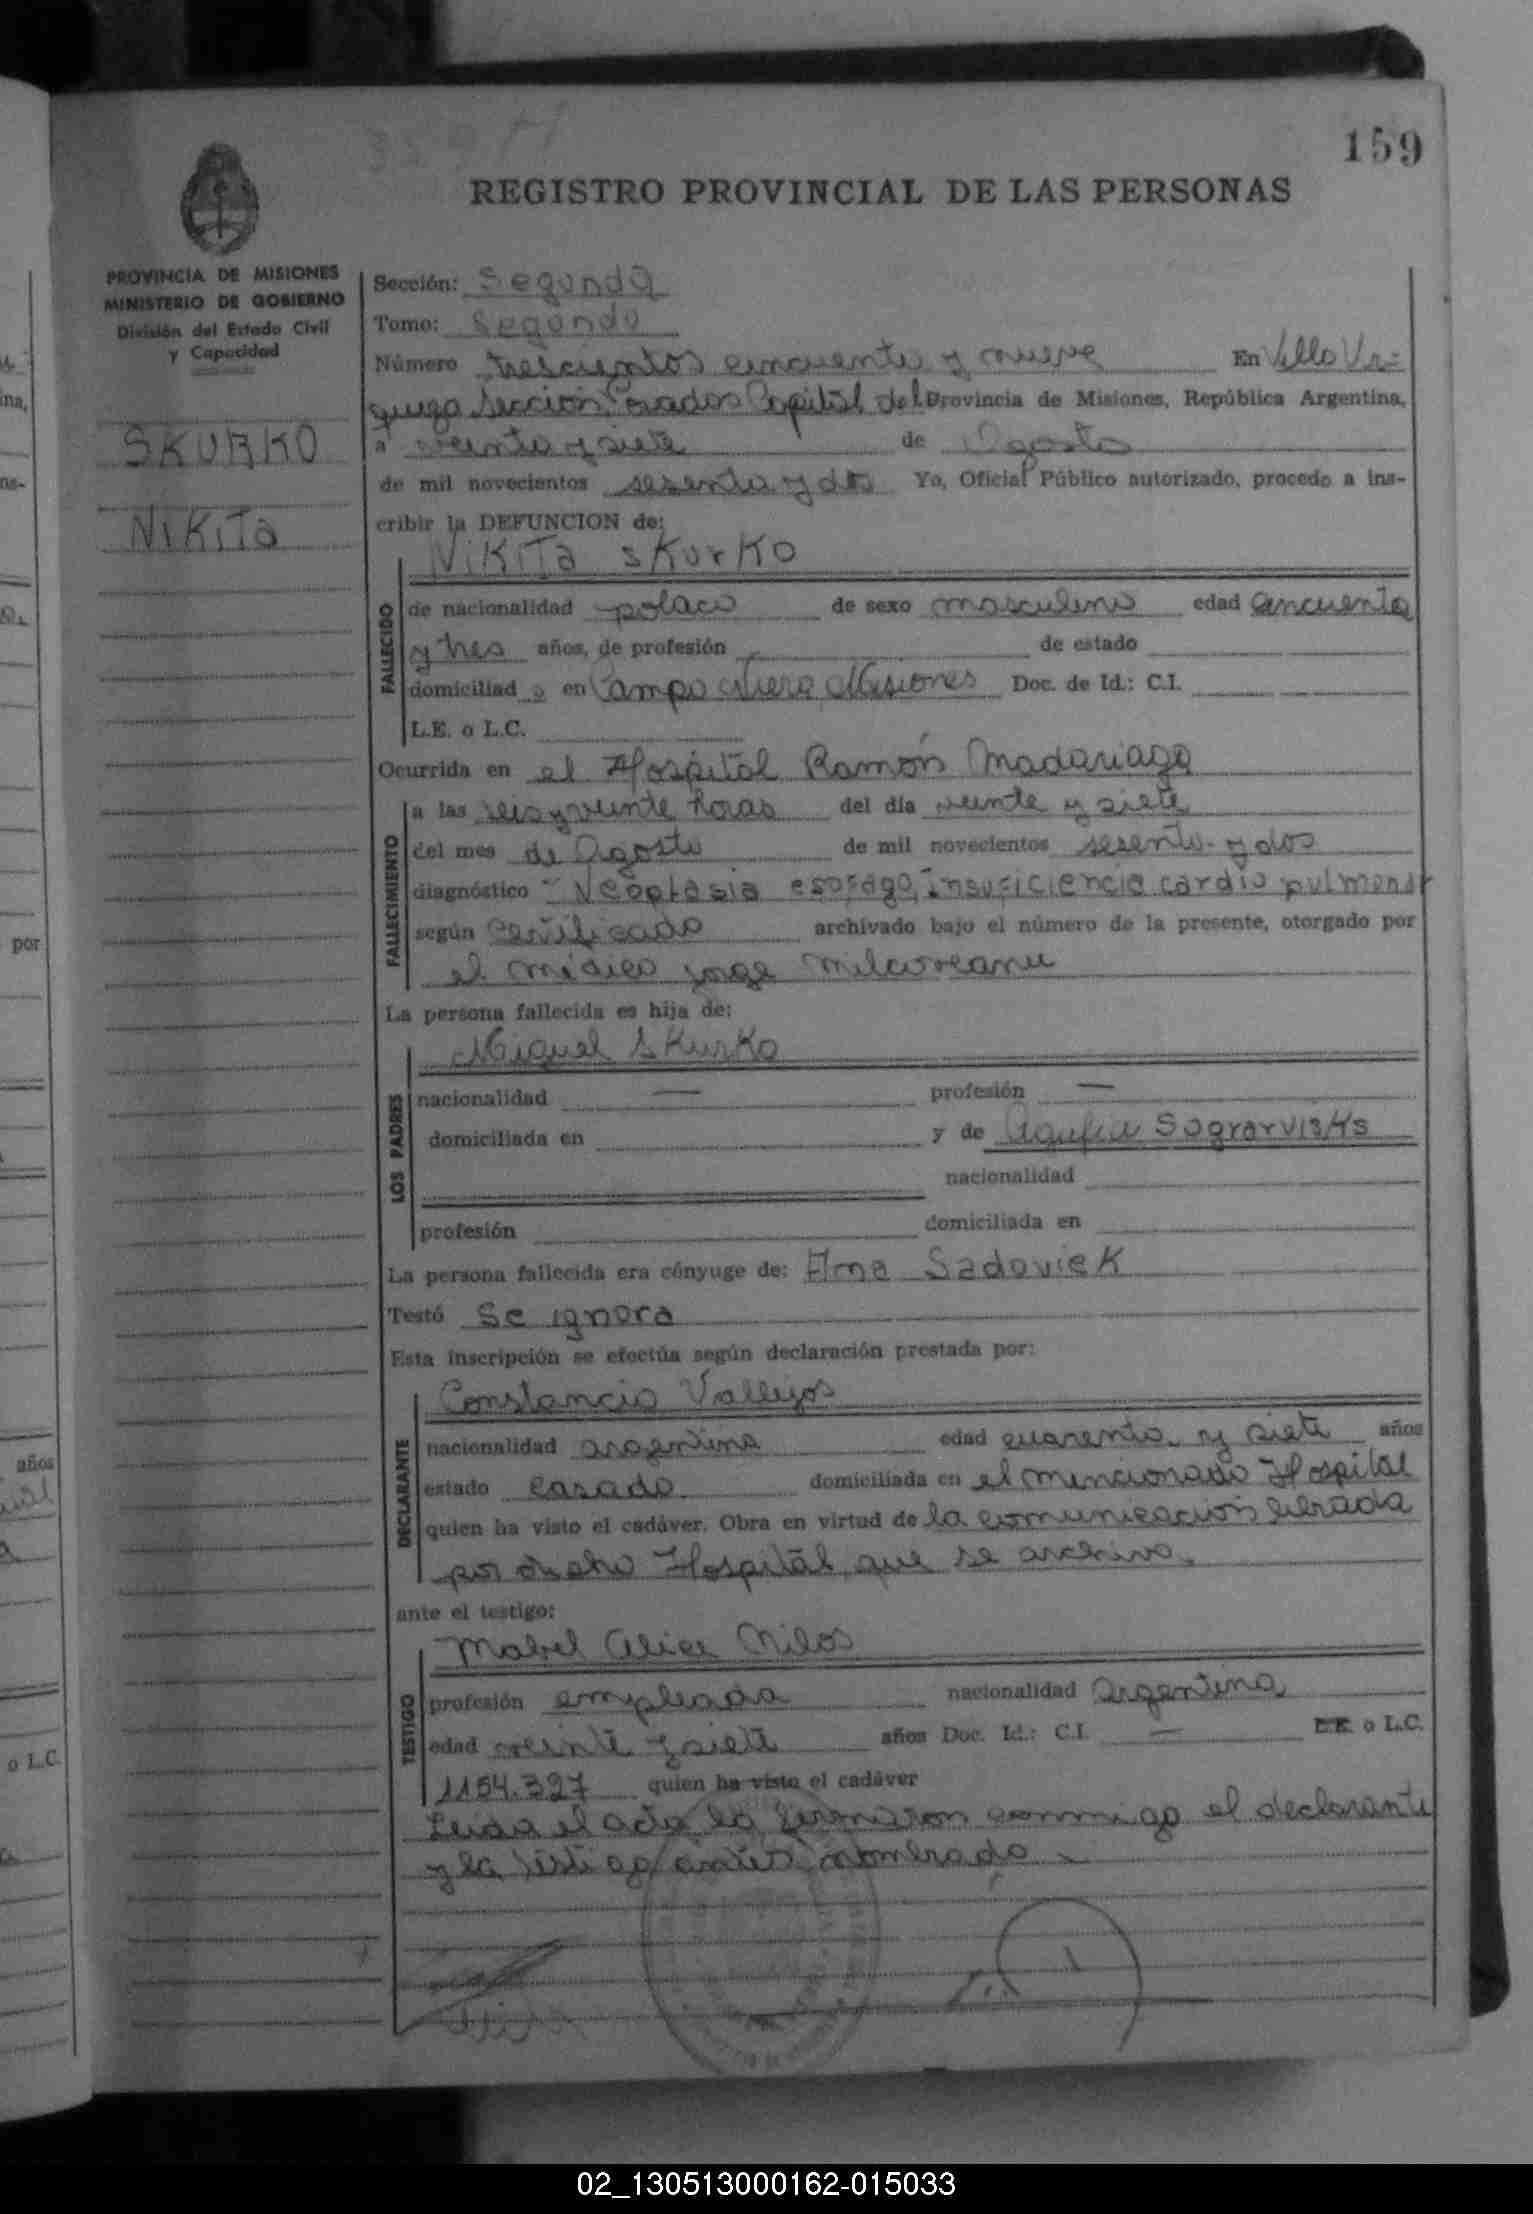 159
REGISTRO PROVINCIAL DE LAS PERSONAS
PROVINCIA DE MISIONES
MINISTERIO DE GOBIERNO
División del Estado Civil
y Capacidad
SKURKO
NIKITA
Sección: Segunda
Tomo: Segundo
Número trescientos cincuenta y nueve En Villa Ur-
quiza Sección Posadas Capital de la Provincia de Misiones, República Argentina,
a veinte y siete de Agosto
de mil novecientos sesenta y dos Yo, Oficial Público autorizado, procedo a ins-
cribir la DEFUNCION de:
NiKiTa SKurKO
FALLECIDO
de nacionalidad polaco de sexo masculino edad cincuenta
y tres años, de profesión de estado
domiciliad o en Campo Viera Misiones Doc. de Id.: C.I.
L.E. o L.C.
Ocurrida en el Hospital Ramón Madariaga
FALLECIMIENTO
a las seis y veinte horas del día veinte y siete
del mes de Agosto de mil novecientos sesenta y dos
diagnóstico Neoplasia esofago, insuficiencia cardio pulmonar
según certificado archivado bajo el número de la presente, otorgado por
el médico Jorge
La persona fallecida es hija de:
LOS PADRES
Miguel SKurKo
nacionalidad — profesión —
domiciliada en y de Agafia
nacionalidad
profesión domiciliada en
La persona fallecida era cónyuge de: Ana SadovieK
Testó Se ignora
Esta inscripción se efectúa según declaración prestada por:
DECLARANTE
Constancio Vallejos
nacionalidad argentina edad cuarenta y siete años
estado casado domiciliada en el mencionado Hospital
quien ha visto el cadáver. Obra en virtud de la comunicación librada
por dicho Hospital que se archiva.
ante el testigo:
TESTIGO
Mabel Alicia Milos
profesión empleada nacionalidad Argentina
edad veinte y siete años Doc. Id.: C.I. — L.E. o L.C.
1154.327 quien ha visto el cadáver
Leida el acta la firmaron conmigo el declarante
y la testigo antes nombrado
por
años
o L.C.
02_130513000162-015033